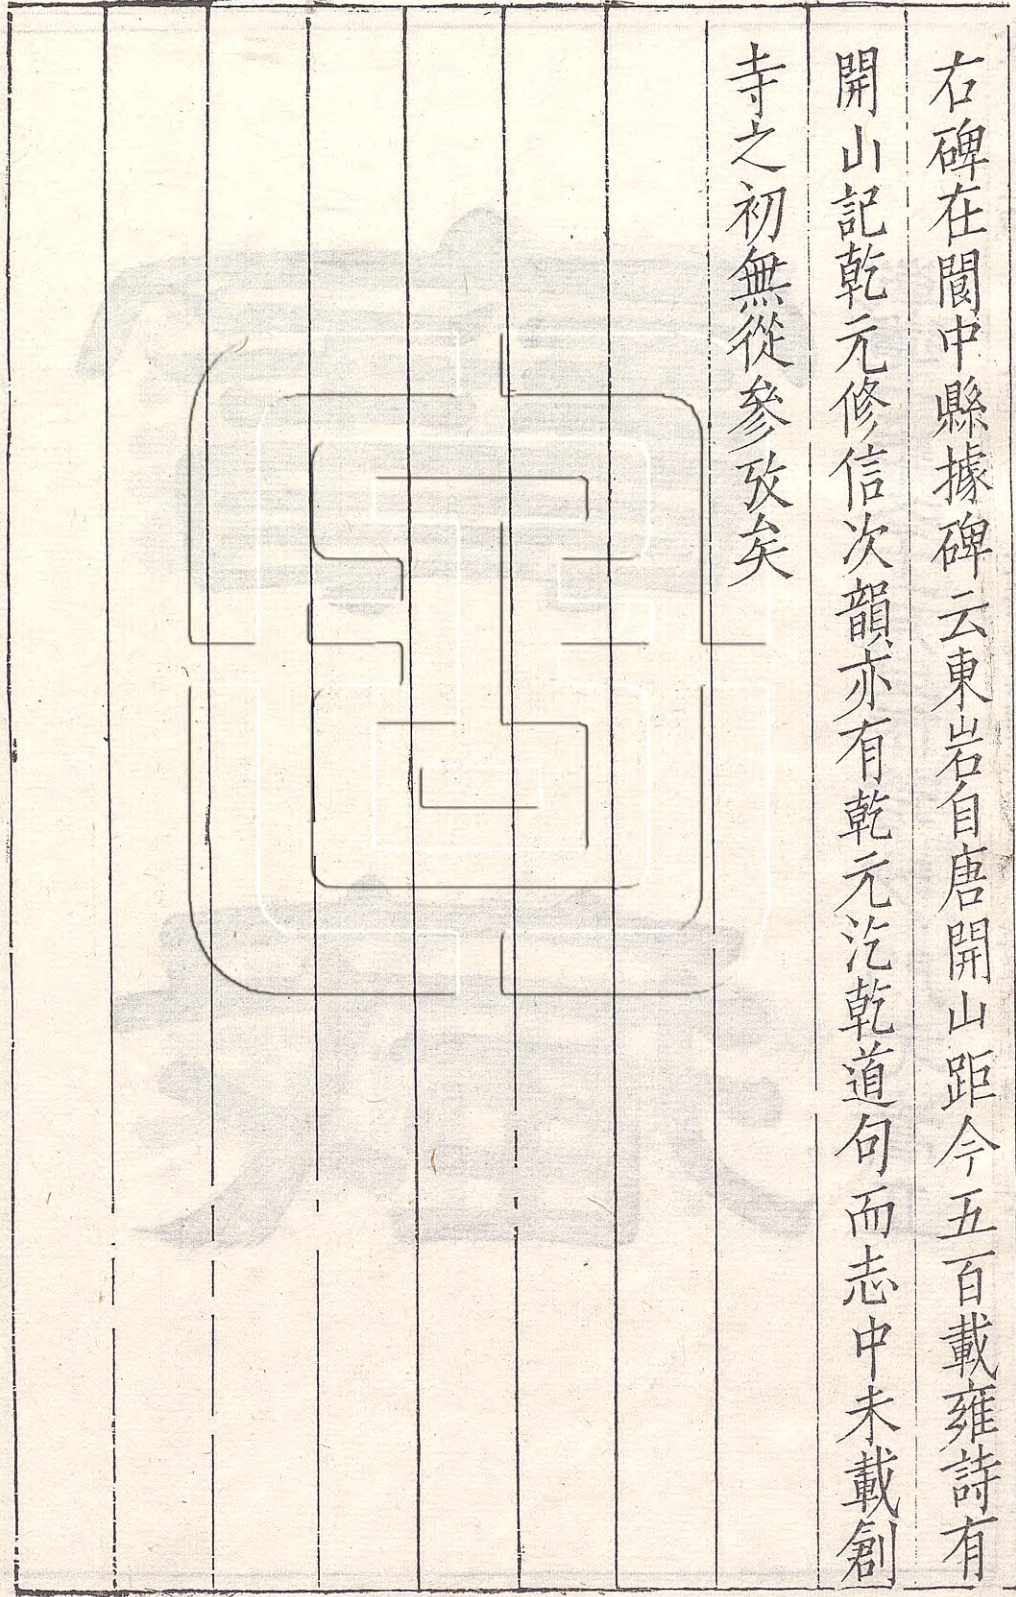 右碑在閬中縣據碑云東岩自唐開山距今五百載雍詩有
開山記乾元修信次韻亦有乾元汔乾道句而志中未載創
寺之初無從參攷矣